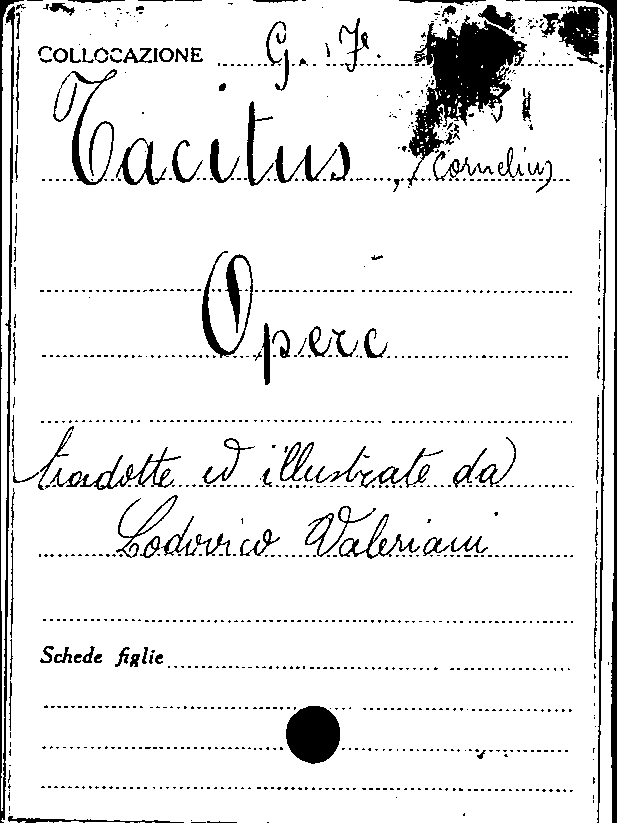 COLLOCAZIONE G. 7e.
Tacitus, (Cornelius)
Opere
tradotte ed illustrate da
Lodovico Valeriani
Schede figlie